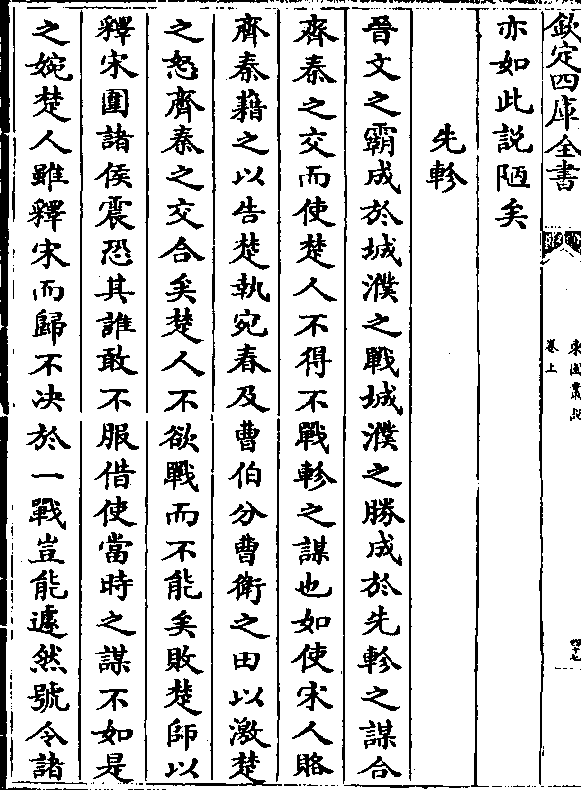 欽定四庫全書
東園叢説
卷上
四十七
亦如此説陋矣
先軫
晉文之霸成於城濮之戰城濮之勝成於先軫之謀合
齊秦之交而使楚人不得不戰軫之謀也如使宋人賂
齊秦藉之以告楚執宛春及曹伯分曹衛之田以激楚
之怒齊秦之交合矣楚人不欲戰而不能矣敗楚師以
釋宋圍諸侯震恐其誰敢不服借使當時之謀不如是
之婉楚人雖釋宋而歸不決於一戰豈能遽然號令諸